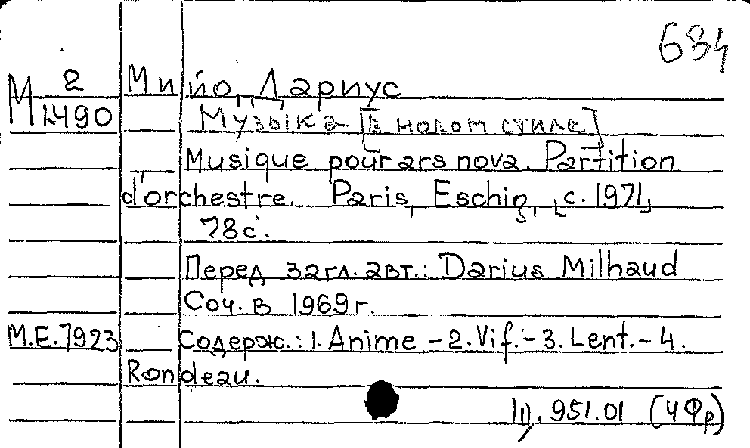 634
М 2 Мийо, Дариус
1490 Музыка [в новом стиле]
Musique pour ars nova. Partition
d'orchestre. Paris, Eschig, [c. 1971]
78с.
Перед загл. авт.: Darius Milhaud
Соч. в 1969г.
M.E.7923 Содерж.: 1. Anime - 2. Vif. - 3. Lent. - 4.
Rondeau.
951.01 (4Фр)